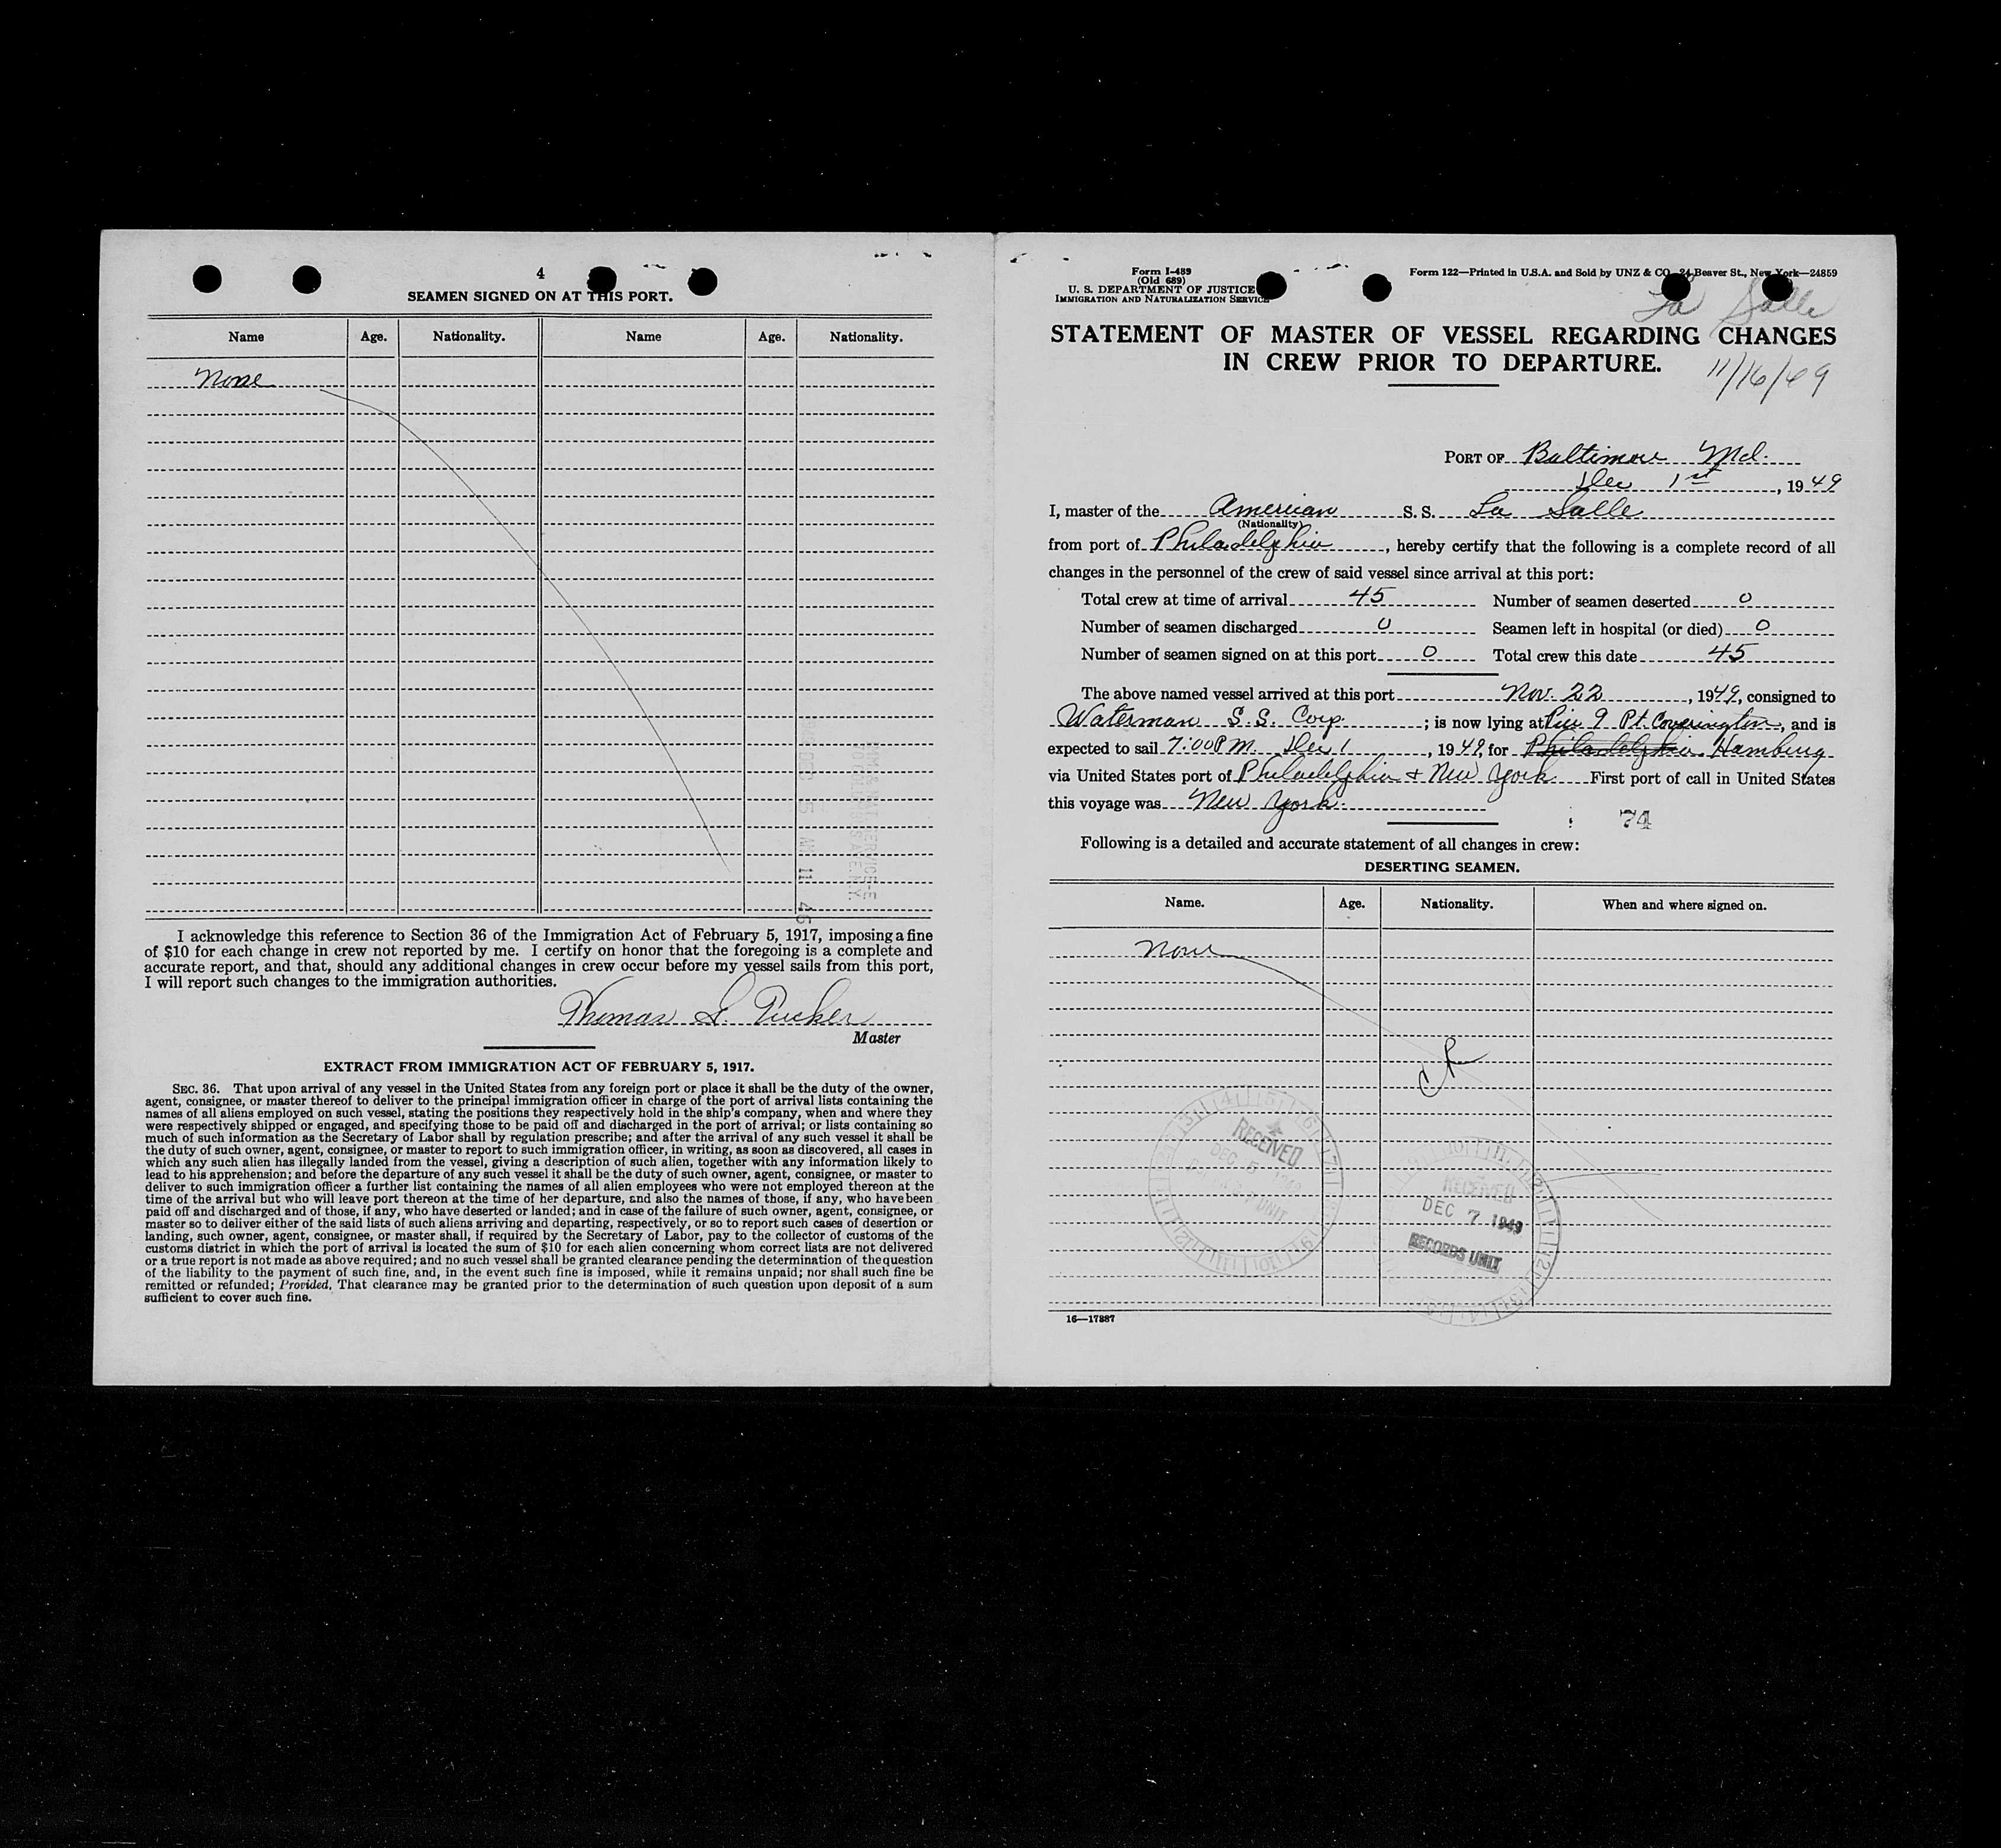 4
SEAMEN SIGNED ON AT THIS PORT.
Name Age. Nationality. Name Age. Nationality.
None
I acknowledge this reference to Section 36 of the Immigration Act of February 5, 1917, imposing a fine
of $10 for each change in crew not reported by me. I certify on honor that the foregoing is a complete and
accurate report, and that, should any additional changes in crew occur before my vessel sails from this port,
I will report such changes to the immigration authorities.
Thomas S. Tucker
Master
EXTRACT FROM IMMIGRATION ACT OF FEBRUARY 5, 1917.
SEC. 36. That upon arrival of any vessel in the United States from any foreign port or place it shall be the duty of the owner,
agent, consignee, or master thereof to deliver to the principal immigration officer in charge of the port of arrival lists containing the
names of all aliens employed on such vessel, stating the positions they respectively hold in the ship's company, when and where they
were respectively shipped or engaged, and specifying those to be paid off and discharged in the port of arrival; or lists containing so
much of such information as the Secretary of Labor shall by regulation prescribe; and after the arrival of any such vessel it shall be
the duty of such owner, agent, consignee, or master to report to such immigration officer, in writing, as soon as discovered, all cases in
which any such alien has illegally landed from the vessel, giving a description of such alien, together with any information likely to
lead to his apprehension; and before the departure of any such vessel it shall be the duty of such owner, agent, consignee, or master to
deliver to such immigration officer a further list containing the names of all alien employees who were not employed thereon at the
time of the arrival but who will leave port thereon at the time of her departure, and also the names of those, if any, who have been
paid off and discharged and of those, if any, who have deserted or landed; and in case of the failure of such owner, agent, consignee, or
master so to deliver either of the said lists of such aliens arriving and departing, respectively, or so to report such cases of desertion or
landing, such owner, agent, consignee, or master shall, if required by the Secretary of Labor, pay to the collector of customs of the
customs district in which the port of arrival is located the sum of $10 for each alien concerning whom correct lists are not delivered
or a true report is not made as above required; and no such vessel shall be granted clearance pending the determination of the question
of the liability to the payment of such fine, and, in the event such fine is imposed, while it remains unpaid; nor shall such fine be
remitted or refunded; Provided, That clearance may be granted prior to the determination of such question upon deposit of a sum
sufficient to cover such fine.
Form I-489
(Old 689)
U. S. DEPARTMENT OF JUSTICE
IMMIGRATION AND NATURALIZATION SERVICE
Form 122—Printed in U.S.A. and Sold by UNZ & CO. 24 Beaver St., New York—24859
La Salle
STATEMENT OF MASTER OF VESSEL REGARDING CHANGES
IN CREW PRIOR TO DEPARTURE.
11/16/49
PORT OF Baltimore Md.
Dec 1st, 1949
I, master of the American S. S. La Salle
(Nationality)
from port of Philadelphia, hereby certify that the following is a complete record of all
changes in the personnel of the crew of said vessel since arrival at this port:
Total crew at time of arrival 45 Number of seamen deserted 0
Number of seamen discharged 0 Seamen left in hospital (or died) 0
Number of seamen signed on at this port 0 Total crew this date 45
The above named vessel arrived at this port Nov. 22, 1949, consigned to
Waterman S.S. Corp. ; is now lying at Pier 9 Pt. Covington, and is
expected to sail 7:00 P.M. Dec 1, 1949, for Philadelphia Hamburg
via United States port of Philadelphia & New York First port of call in United States
this voyage was New York.
74
Following is a detailed and accurate statement of all changes in crew:
DESERTING SEAMEN.
Name. Age. Nationality. When and where signed on.
None
RECEIVED
DEC 5 1949
UNIT
RECEIVED
DEC 7 1949
RECORDS UNIT
16—17887